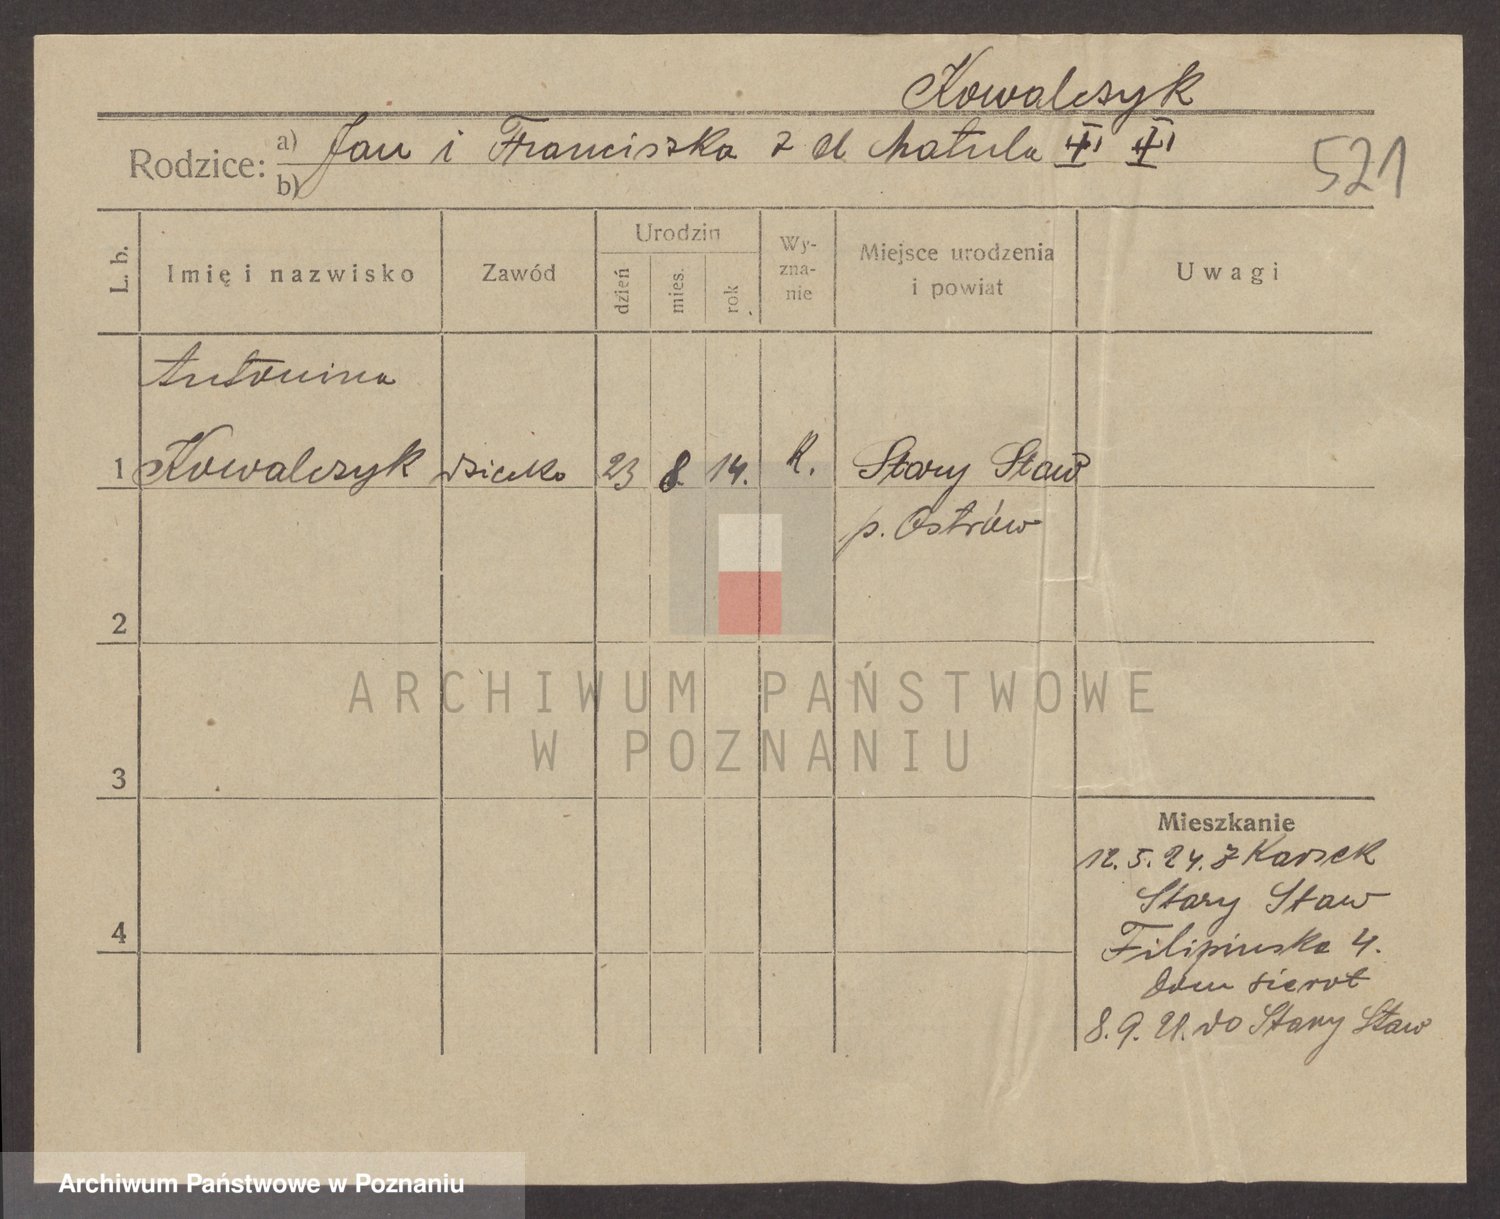 Kowalczyk
Rodzice: a) Jan i Franciszka z d. Matula
b)
521
L. b.
Imię i nazwisko
Zawód
Urodzin
dzień
mies.
rok
Wy-
zna-
nie
Miejsce urodzenia
i powiat
Uwagi
Antonina
1 Kowalczyk dziecko 23 8 14. K. Stary Staw
p. Ostrów
2
ARCHIWUM PAŃSTWOWE
W POZNANIU
3
Mieszkanie
12. 5. 24. z
Stary Staw
4
Filipińska 4.
Dom sierot
8. 9. 21. do Stary Staw
Archiwum Państwowe w Poznaniu